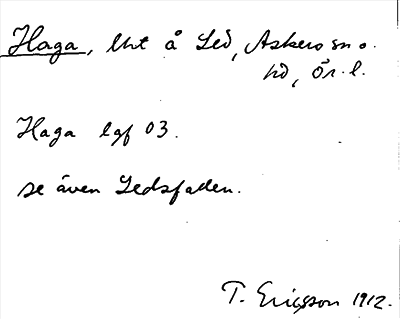 Haga, lht å Led, Askers sn o.
hd, Ör. l.
Haga lgf 03.
se även Ledsfallen.
T. Ericsson 1912.